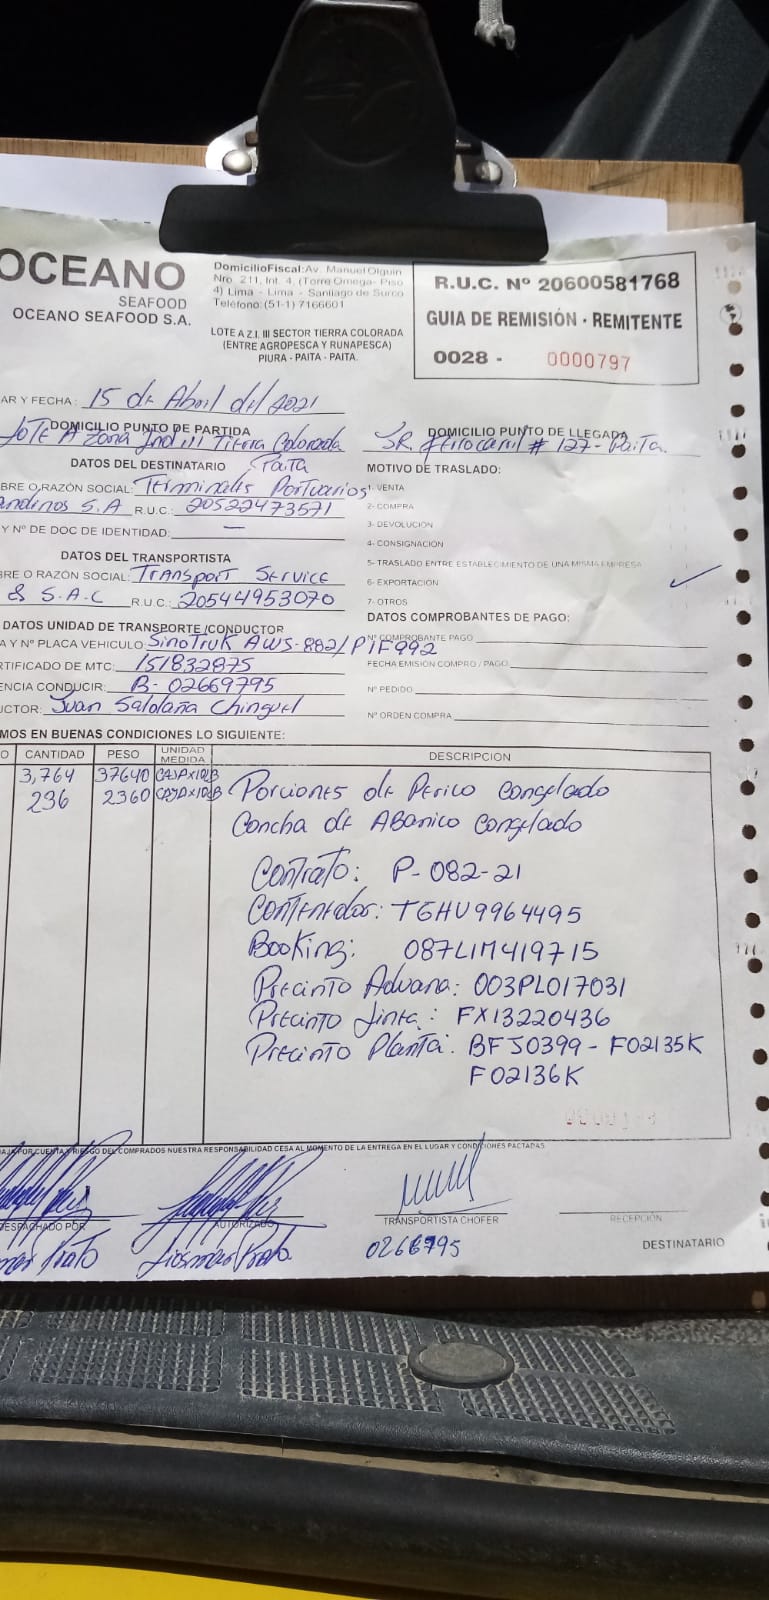 OCEANO
SEAFOOD
OCEANO SEAFOOD S.A.
DomicilioFiscal:Av. Manuel Olguin
Nro. 211, Int. 4, (Torre Omega- Piso
4) Lima - Lima - Santiago de Surco
Teléfono:(51-1) 7166601
LOTE A Z.I. III SECTOR TIERRA COLORADA
(ENTRE AGROPESCA Y RUNAPESCA)
PIURA - PAITA - PAITA.
R.U.C. Nº 20600581768
GUIA DE REMISIÓN - REMITENTE
0028 - 0000797
AR Y FECHA: 15 de Abril del 2021
DOMICILIO PUNTO DE PARTIDA
LOTE A Zona Ind III Tierra Colorada
Paita
DOMICILIO PUNTO DE LLEGADA
Ferrocarril # 127- Paita.
DATOS DEL DESTINATARIO
BRE O RAZÓN SOCIAL: Terminales Portuarios
andinos S.A R.U.C.: 20522473571
Y Nº DE DOC DE IDENTIDAD: —
MOTIVO DE TRASLADO:
1- VENTA
2- COMPRA
3- DEVOLUCION
4- CONSIGNACION
5- TRASLADO ENTRE ESTABLECIMIENTO DE UNA MISMA EMPRESA
6- EXPORTACIÓN ✓
7- OTROS
DATOS DEL TRANSPORTISTA
BRE O RAZÓN SOCIAL: Transport Service
& S.A.C R.U.C.: 20544953070
DATOS UNIDAD DE TRANSPORTE /CONDUCTOR
A Y Nº PLACA VEHICULO: Sinotruk AWS-882/P1F992
RTIFICADO DE MTC: 151832875
ENCIA CONDUCIR: B-02669795
UCTOR: Juan Saldaña Chinguel
DATOS COMPROBANTES DE PAGO:
Nº COMPROBANTE PAGO
FECHA EMISIÓN COMPRO / PAGO
Nº PEDIDO
Nº ORDEN COMPRA
MOS EN BUENAS CONDICIONES LO SIGUIENTE:
O CANTIDAD PESO UNIDAD MEDIDA DESCRIPCION
3,764 37640 CAJAX10LB Porciones de Perico Congelado
236 2360 CAJAX10LB Concha de Abanico Congelado
Contrato: P-082-21
Contenedor: TGHU9964495
Booking: 087LIM419715
Precinto Aduana: 003PL017031
Precinto Linea: FX13220436
Precinto Planta: BF50399 - F02135K
F02136K
AJA POR CUENTA Y RIESGO DEL COMPRADOS NUESTRA RESPONSABILIDAD CESA AL MOMENTO DE LA ENTREGA EN EL LUGAR Y CONDICIONES PACTADAS
DESPACHADO POR
AUTORIZADO
TRANSPORTISTA CHOFER
0266795
RECEPCIÓN
DESTINATARIO